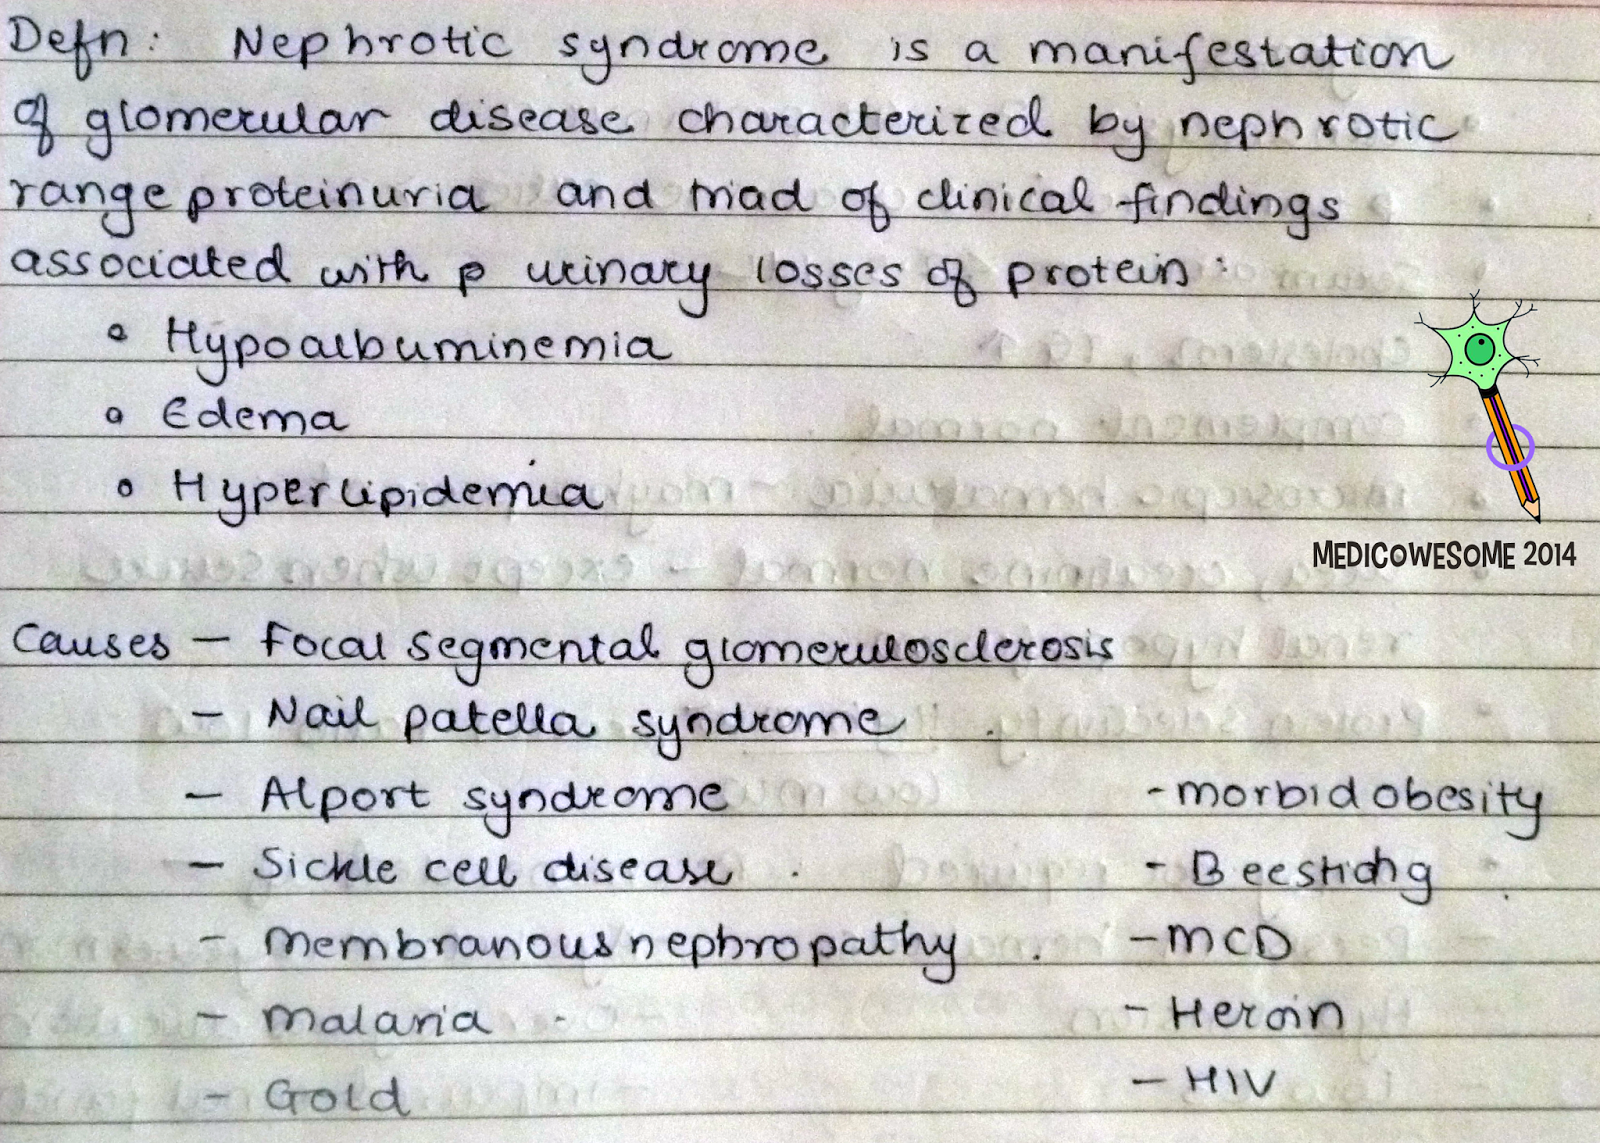 Defn: Nephrotic syndrome is a manifestation
of glomerular disease characterized by nephrotic
range proteinuria and triad of clinical findings
associated with p urinary losses of protein:
Hypoalbuminemia
Edema
Hyperlipidemia
MEDICOWESOME 2014
Causes - Focal segmental glomerulosclerosis
- Nail patella syndrome
- Alport syndrome - morbid obesity
- Sickle cell disease - Bee sting
- Membranous nephropathy - MCD
- Malaria - Heroin
- Gold - HIV